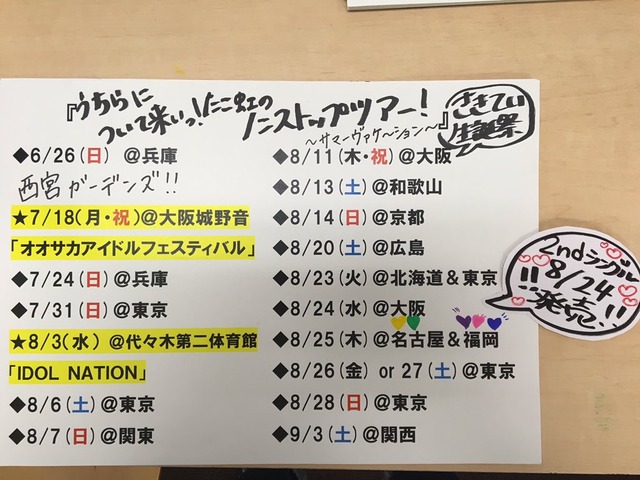 『うちらに
ついて来いっ!たこ虹の
ノンストップツアー!』
〜サマーヴァケ〜ション〜
さきてぃ
生誕祭
◆6/26(日) @兵庫
西宮ガーデンズ!!
★7/18(月・祝)@大阪城野音
「オオサカアイドルフェスティバル」
◆7/24(日)@兵庫
◆7/31(日)@東京
★8/3(水) @代々木第二体育館
「IDOL NATION」
◆8/6(土)@東京
◆8/7(日)@関東
◆8/11(木・祝)@大阪
◆8/13(土)@和歌山
◆8/14(日)@京都
◆8/20(土)@広島
◆8/23(火)@北海道&東京
◆8/24(水)@大阪
◆8/25(木)@名古屋&福岡
◆8/26(金) or 27(土)@東京
◆8/28(日)@東京
◆9/3(土)@関西
2ndシングル
8/24
発売!!